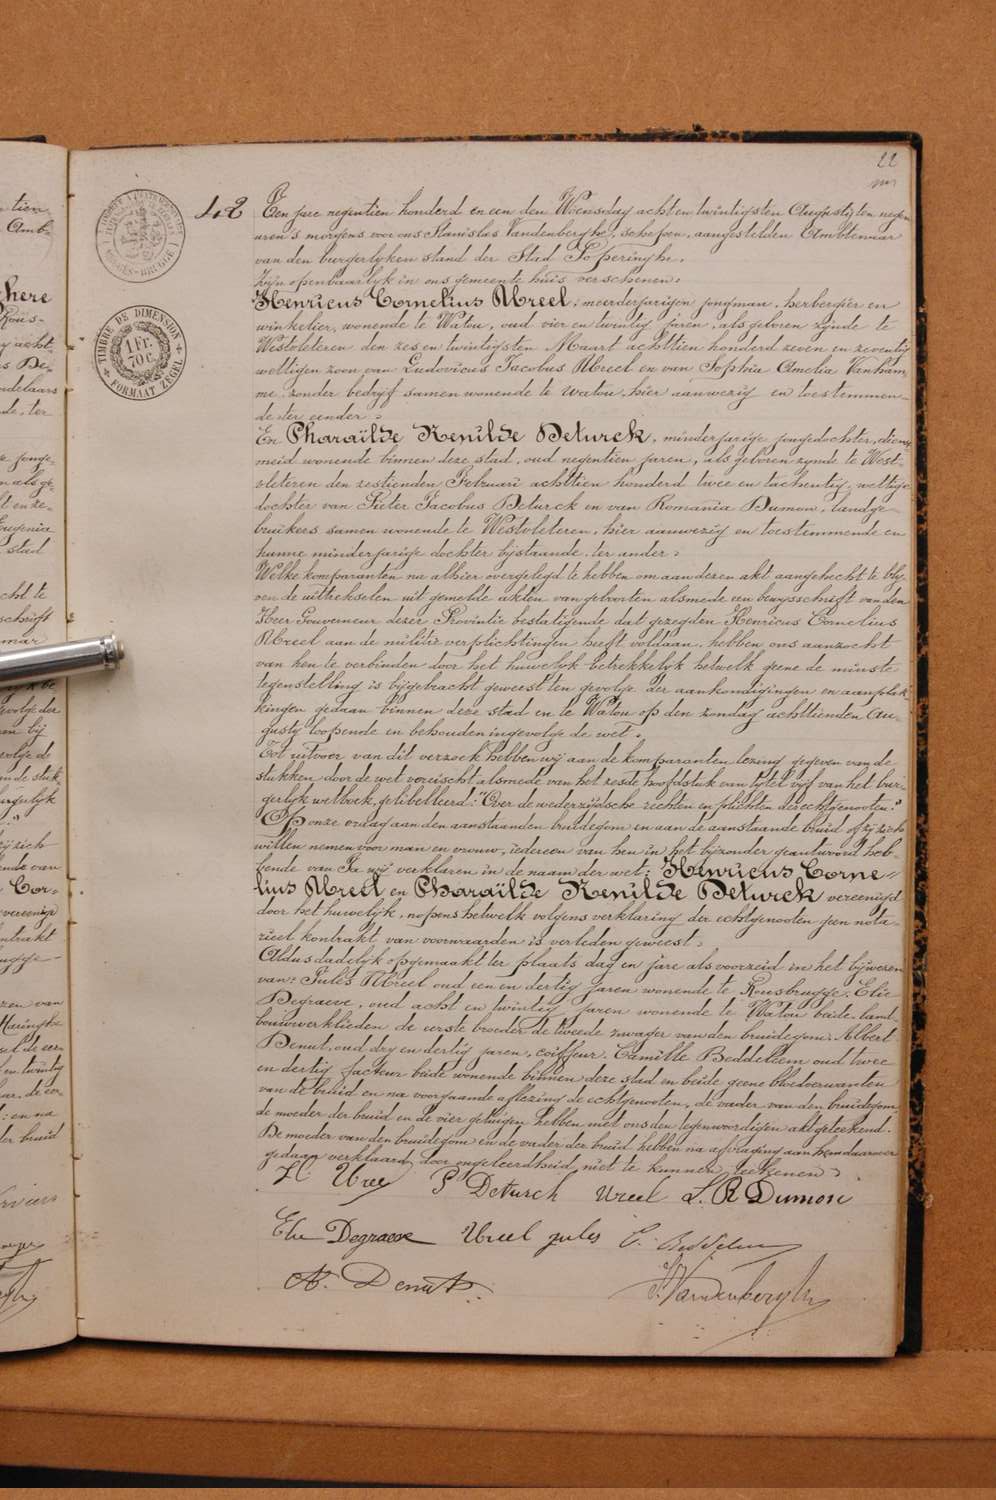 22
42
Ten jare negentien honderd en een den Woensdag acht en twintigsten Augusty ten negen
uren 's morgens voor ons Stanislas Vandenberghe, schepen, aangestelden Ambtenaar
van den burgerlyken stand der Stad Poperinghe.
Zyn openbaarlyk in ons gemeente huis verschenen:
Henricus Cornelius Ureel, meerderjarigen jongman, herbergier en
winkelier, wonende te Watou, oud vier en twintig jaren, als geboren zijnde te
Westvleteren den zes en twintigsten Maart achttien honderd zeven en zeventig
wettigen zoon van Ludovicus Jacobus Ureel en van Sophia Amelia Vanham-
me, zonder bedrijf samen wonende te Watou, hier aanwezig en toestemmen-
de ter eender:
En Pharaïlde Renilde Deturck, minderjarige jongedochter, dienst-
meid wonende binnen deze stad, oud negentien jaren, als geboren zynde te West-
vleteren den zestienden Februari achttien honderd twee en tachentig, wettige
dochter van Pieter Jacobus Deturck en van Romania Dumon, landge-
bruikers samen wonende te Westvleteren, hier aanwezig en toestemmende en
hunne minderjarige dochter bijstaande, ter ander:
Welke komparanten na alhier overgelegd te hebben om aan dezen akt aangehecht te bly-
ven de uittrekselen uit gemelde akten van geboorten alsmede een bewysschrift van den
Heer Gouverneur dezer Provintie bestatigende dat gezegden Henricus Cornelius
Ureel aan de militie verplichtingen heeft voldaan, hebben ons aanzocht
van hen te verbinden door het huwelyk betrekkelyk hetwelk geene de minste
tegenstelling is bijgebracht geweest ten gevolge der aankondigingen en aanplak-
kingen gedaan binnen deze stad en te Watou op den zondag achttienden Au-
gusty loopende en behouden ingevolge de wet.
Tot uitvoer van dit verzoek hebben wij aan de komparanten lezing gegeven van de
stukken door de wet vereischt alsmede van het zesde hoofdstuk van tytel vijf van het bur-
gerlyk wetboek, gelibelleerd: "Over de wederzijdsche rechten en plichten der echtgenooten."
Op onze vraag aan den aanstaanden bruidegom en aan de aanstaande bruid of zij zich
willen nemen voor man en vrouw, iedereen van hen in het byzonder geantwoord heb-
bende van Ja wij verklaren in de naam der wet: Henricus Corne-
lius Ureel en Pharaïlde Renilde Deturck vereenigd
door het huwelyk, nopens hetwelk volgens verklaring der echtgenooten geen nota-
rieel kontrakt van voorwaarden is verleden geweest.
Aldus dadelyk opgemaakt ter plaats dag en jare als voorzeid in het bijwezen
van: Jules Ureel oud een en dertig jaren wonende te Rousbrugge, Elie
Degraeve, oud acht en twintig jaren wonende te Watou beide land-
bouwwerklieden de eerste broeder de tweede zwager van den bruidegom, Albert
Denut, oud dry en dertig jaren, coiffeur, Camille Beddeleem oud twee
en dertig facteur beide wonende binnen deze stad en beide geene bloedverwanten
van de bruid en na voorgaande aflezing de echtgenooten, de vader van den bruidegom
de moeder der bruid en de vier getuigen hebben met ons den tegenwoordigen akt geteekend.
De moeder van den bruidegom en de vader der bruid hebben na afvraging aan hem daarover
gedaan verklaard door ongeleerdheid niet te kunnen teekenen.
H Ureel P Deturck Ureel L. R Dumon
Elie Degraeve Ureel jules C. Beddeleem
A. Denut S. Vandenberghe
TIMBRE DE DIMENSION
1 Fr.
70 c.
FORMAAT ZEGEL